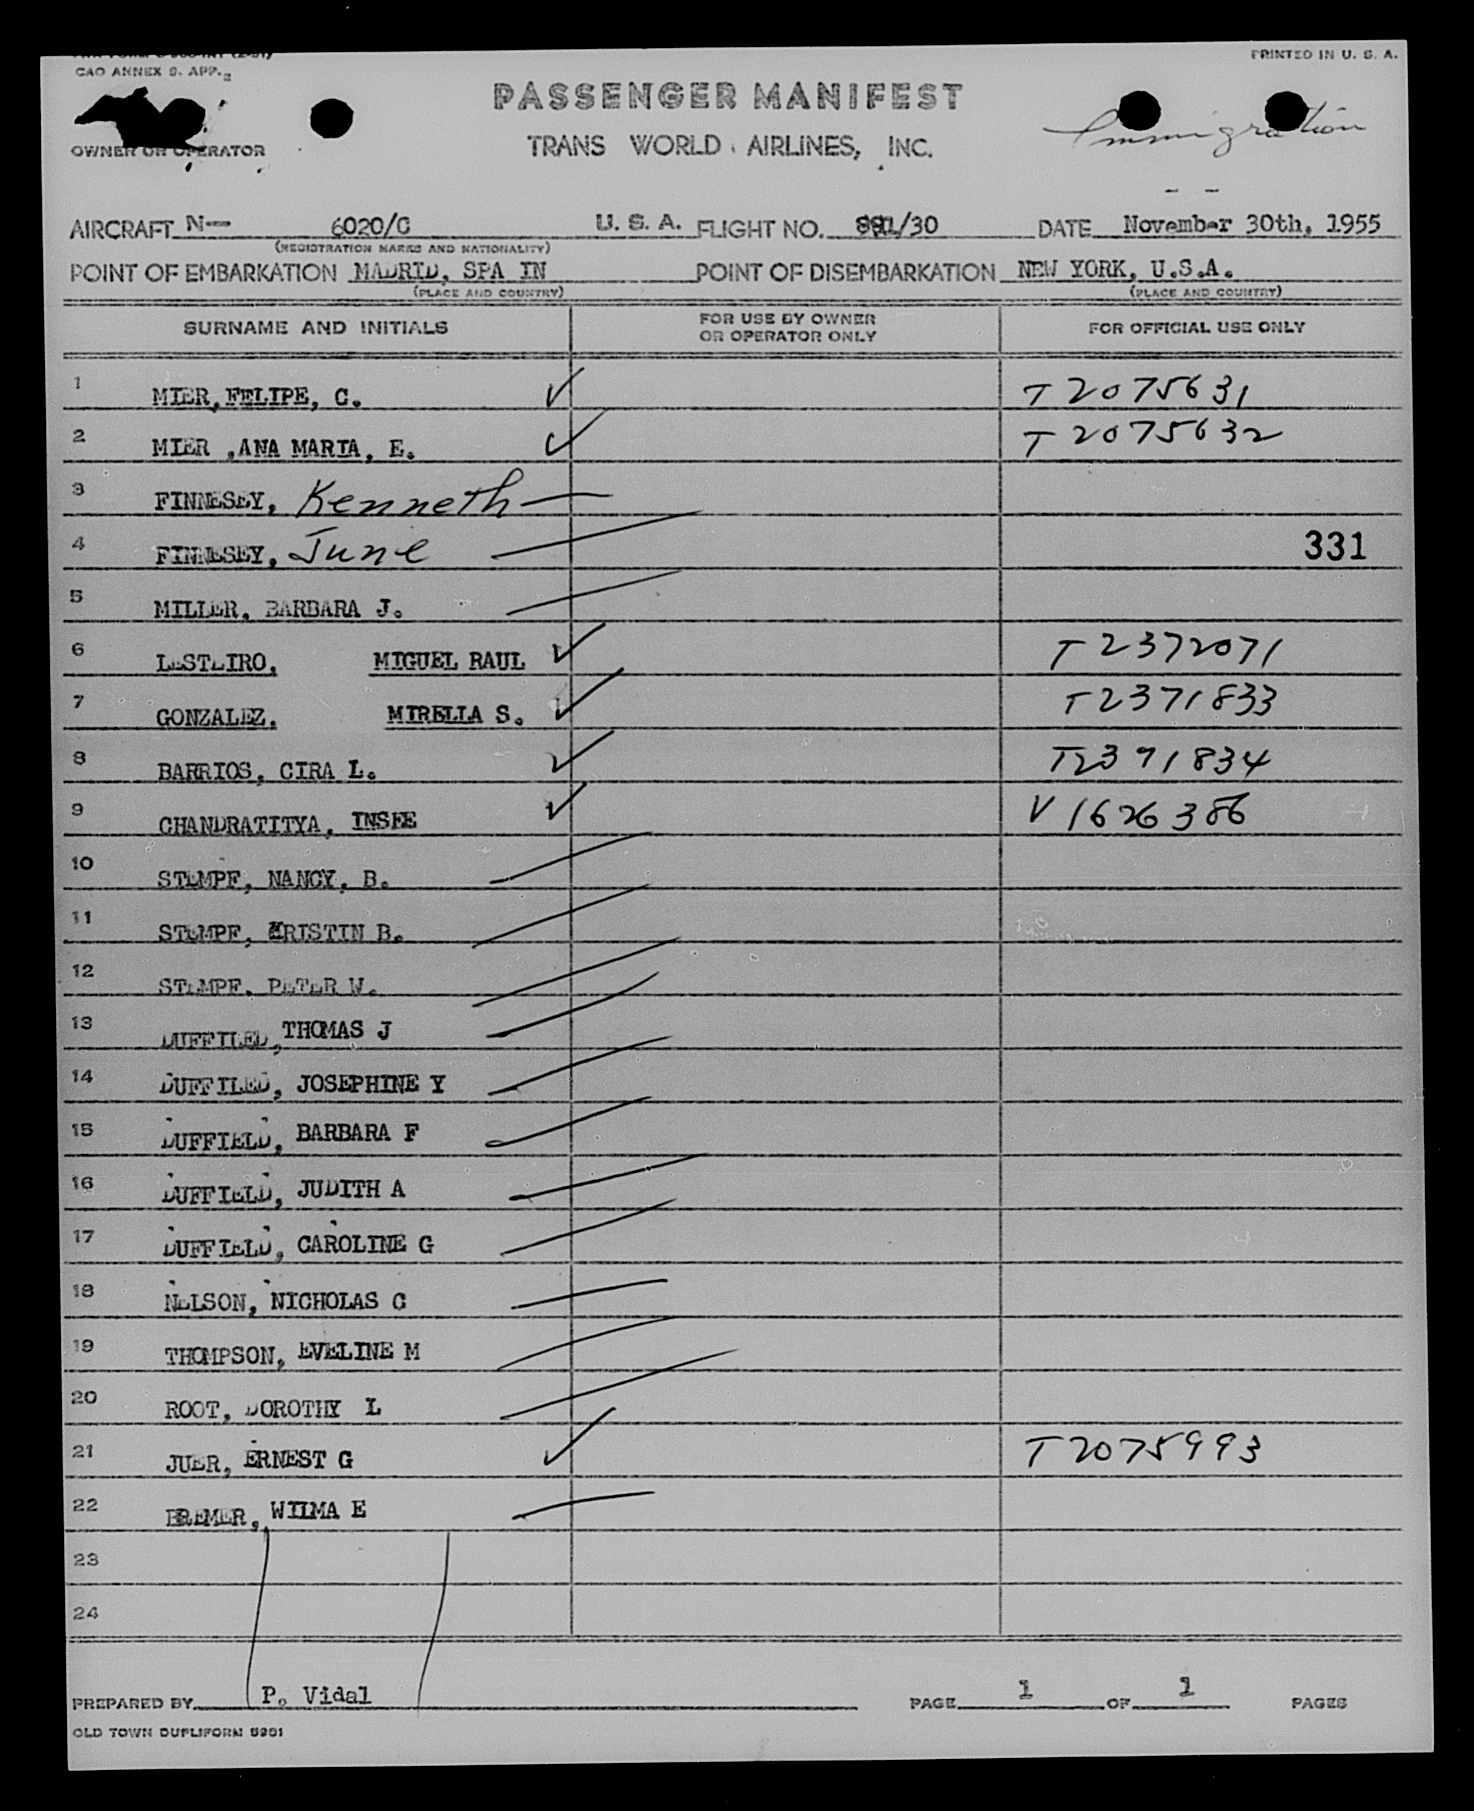 CAO ANNEX 9. APP. 2
PRINTED IN U. S. A.
PASSENGER MANIFEST
Immigration
OWNER OR OPERATOR
TRANS WORLD AIRLINES, INC.
AIRCRAFT N- 6020/C U. S. A. FLIGHT NO. 891/30 DATE November 30th, 1955
(REGISTRATION MARKS AND NATIONALITY)
POINT OF EMBARKATION MADRID, SPA IN POINT OF DISEMBARKATION NEW YORK, U.S.A.
(PLACE AND COUNTRY) (PLACE AND COUNTRY)
SURNAME AND INITIALS FOR USE BY OWNER OR OPERATOR ONLY FOR OFFICIAL USE ONLY
1 MIER, FELIPE, C. ✓ T2075631
2 MIER ,ANA MARIA, E. ✓ T2075632
3 FINNESEY, Kenneth —
4 FINNESEY, June 331
5 MILLER, BARBARA J.
6 LESTEIRO, MIGUEL RAUL ✓ T2372071
7 GONZALEZ, MIRELLA S. ✓ T2371833
8 BARRIOS, CIRA L. ✓ T2371834
9 CHANDRATITYA, INSEE ✓ V1626386
10 STEMPF, NANCY, B.
11 STEMPF, KRISTIN B.
12 STEMPF, PETER W.
13 DUFFILED, THOMAS J
14 DUFFILED, JOSEPHINE Y
15 DUFFIELD, BARBARA F
16 DUFFIELD, JUDITH A
17 DUFFIELD, CAROLINE G
18 NELSON, NICHOLAS C
19 THOMPSON, EVELINE M
20 ROOT, DOROTHY L
21 JUER, ERNEST G ✓ T2075993
22 BREMER, WILMA E
23
24
PREPARED BY P. Vidal PAGE 1 OF 1 PAGES
OLD TOWN DUPLIFORM 5951